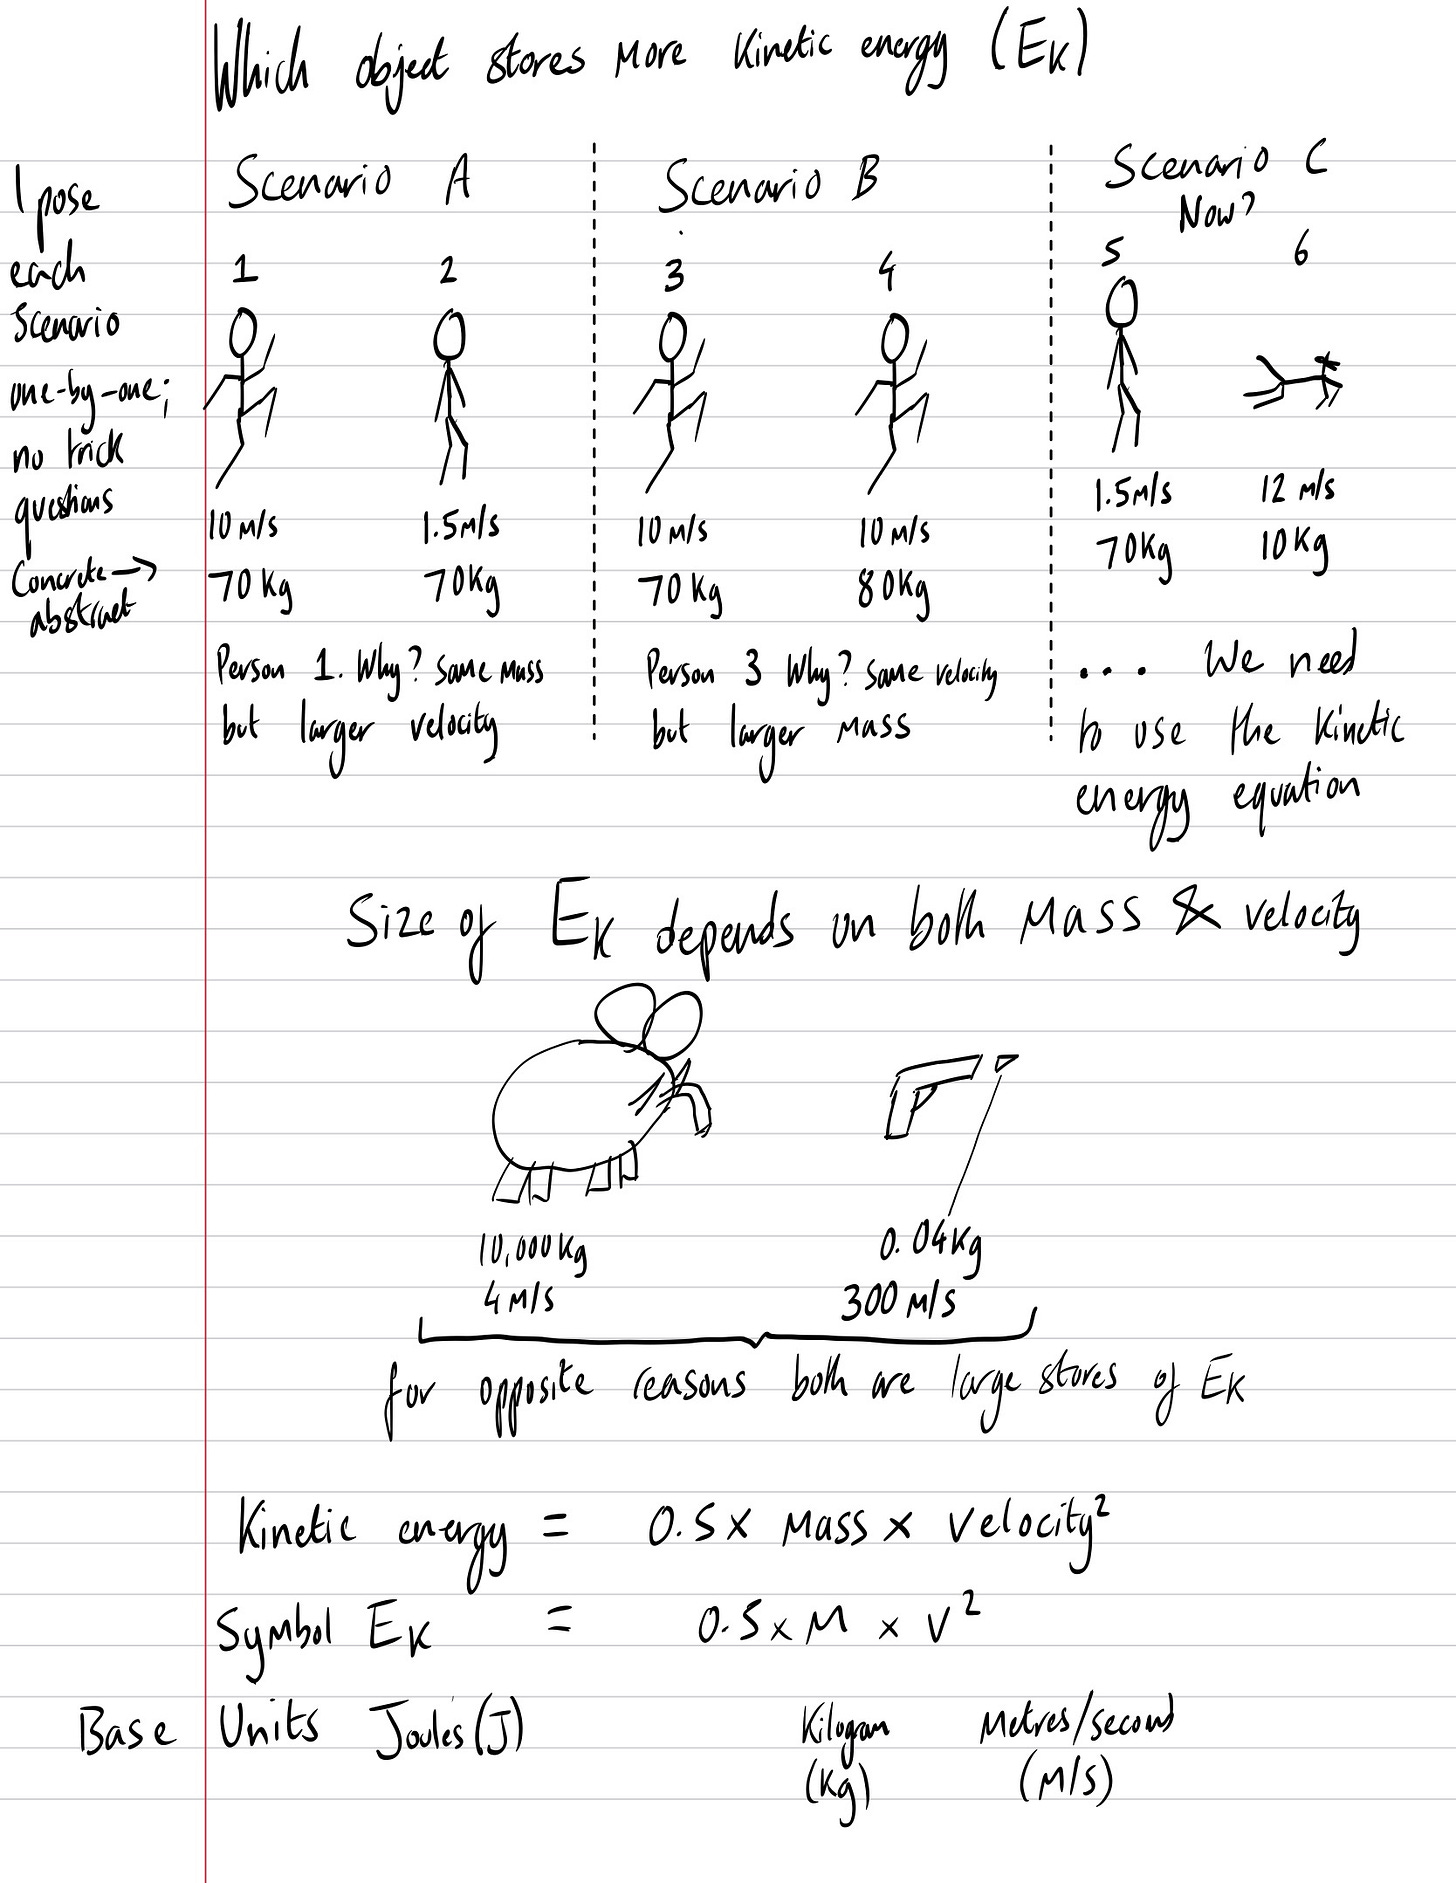 Which object stores more kinetic energy (EK)
I pose
each
Scenario
one-by-one;
no trick
questions
Concrete →
abstract
Scenario A
1 2
10 m/s 1.5 m/s
70 Kg 70 Kg
Person 1. Why? Same mass
but larger velocity
Scenario B
3 4
10 m/s 10 m/s
70 Kg 80 Kg
Person 3 Why? Same velocity
but larger mass
Scenario C
Now?
5 6
1.5 m/s 12 m/s
70 Kg 10 Kg
.... We need
to use the kinetic
energy equation
Size of EK depends on both mass & velocity
10,000 Kg
4 m/s
0.04 Kg
300 m/s
for opposite reasons both are large stores of EK
Kinetic energy = 0.5 x mass x velocity²
Symbol EK = 0.5 x M x V²
Base Units Joules (J) Kilogram Metres/second
(Kg) (M/S)